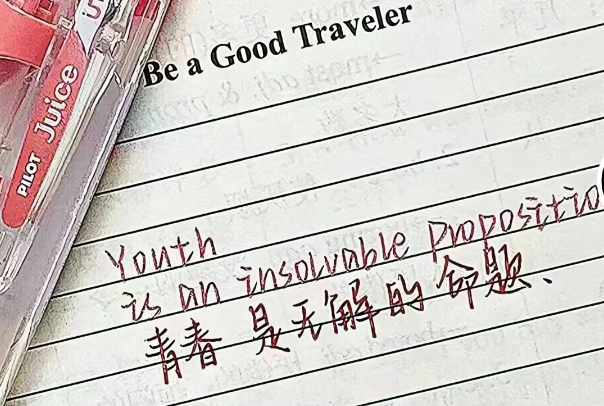 Be a Good Traveler
PILOT Juice 5
Youth
is an insolvable propositio
青春是无解的命题、